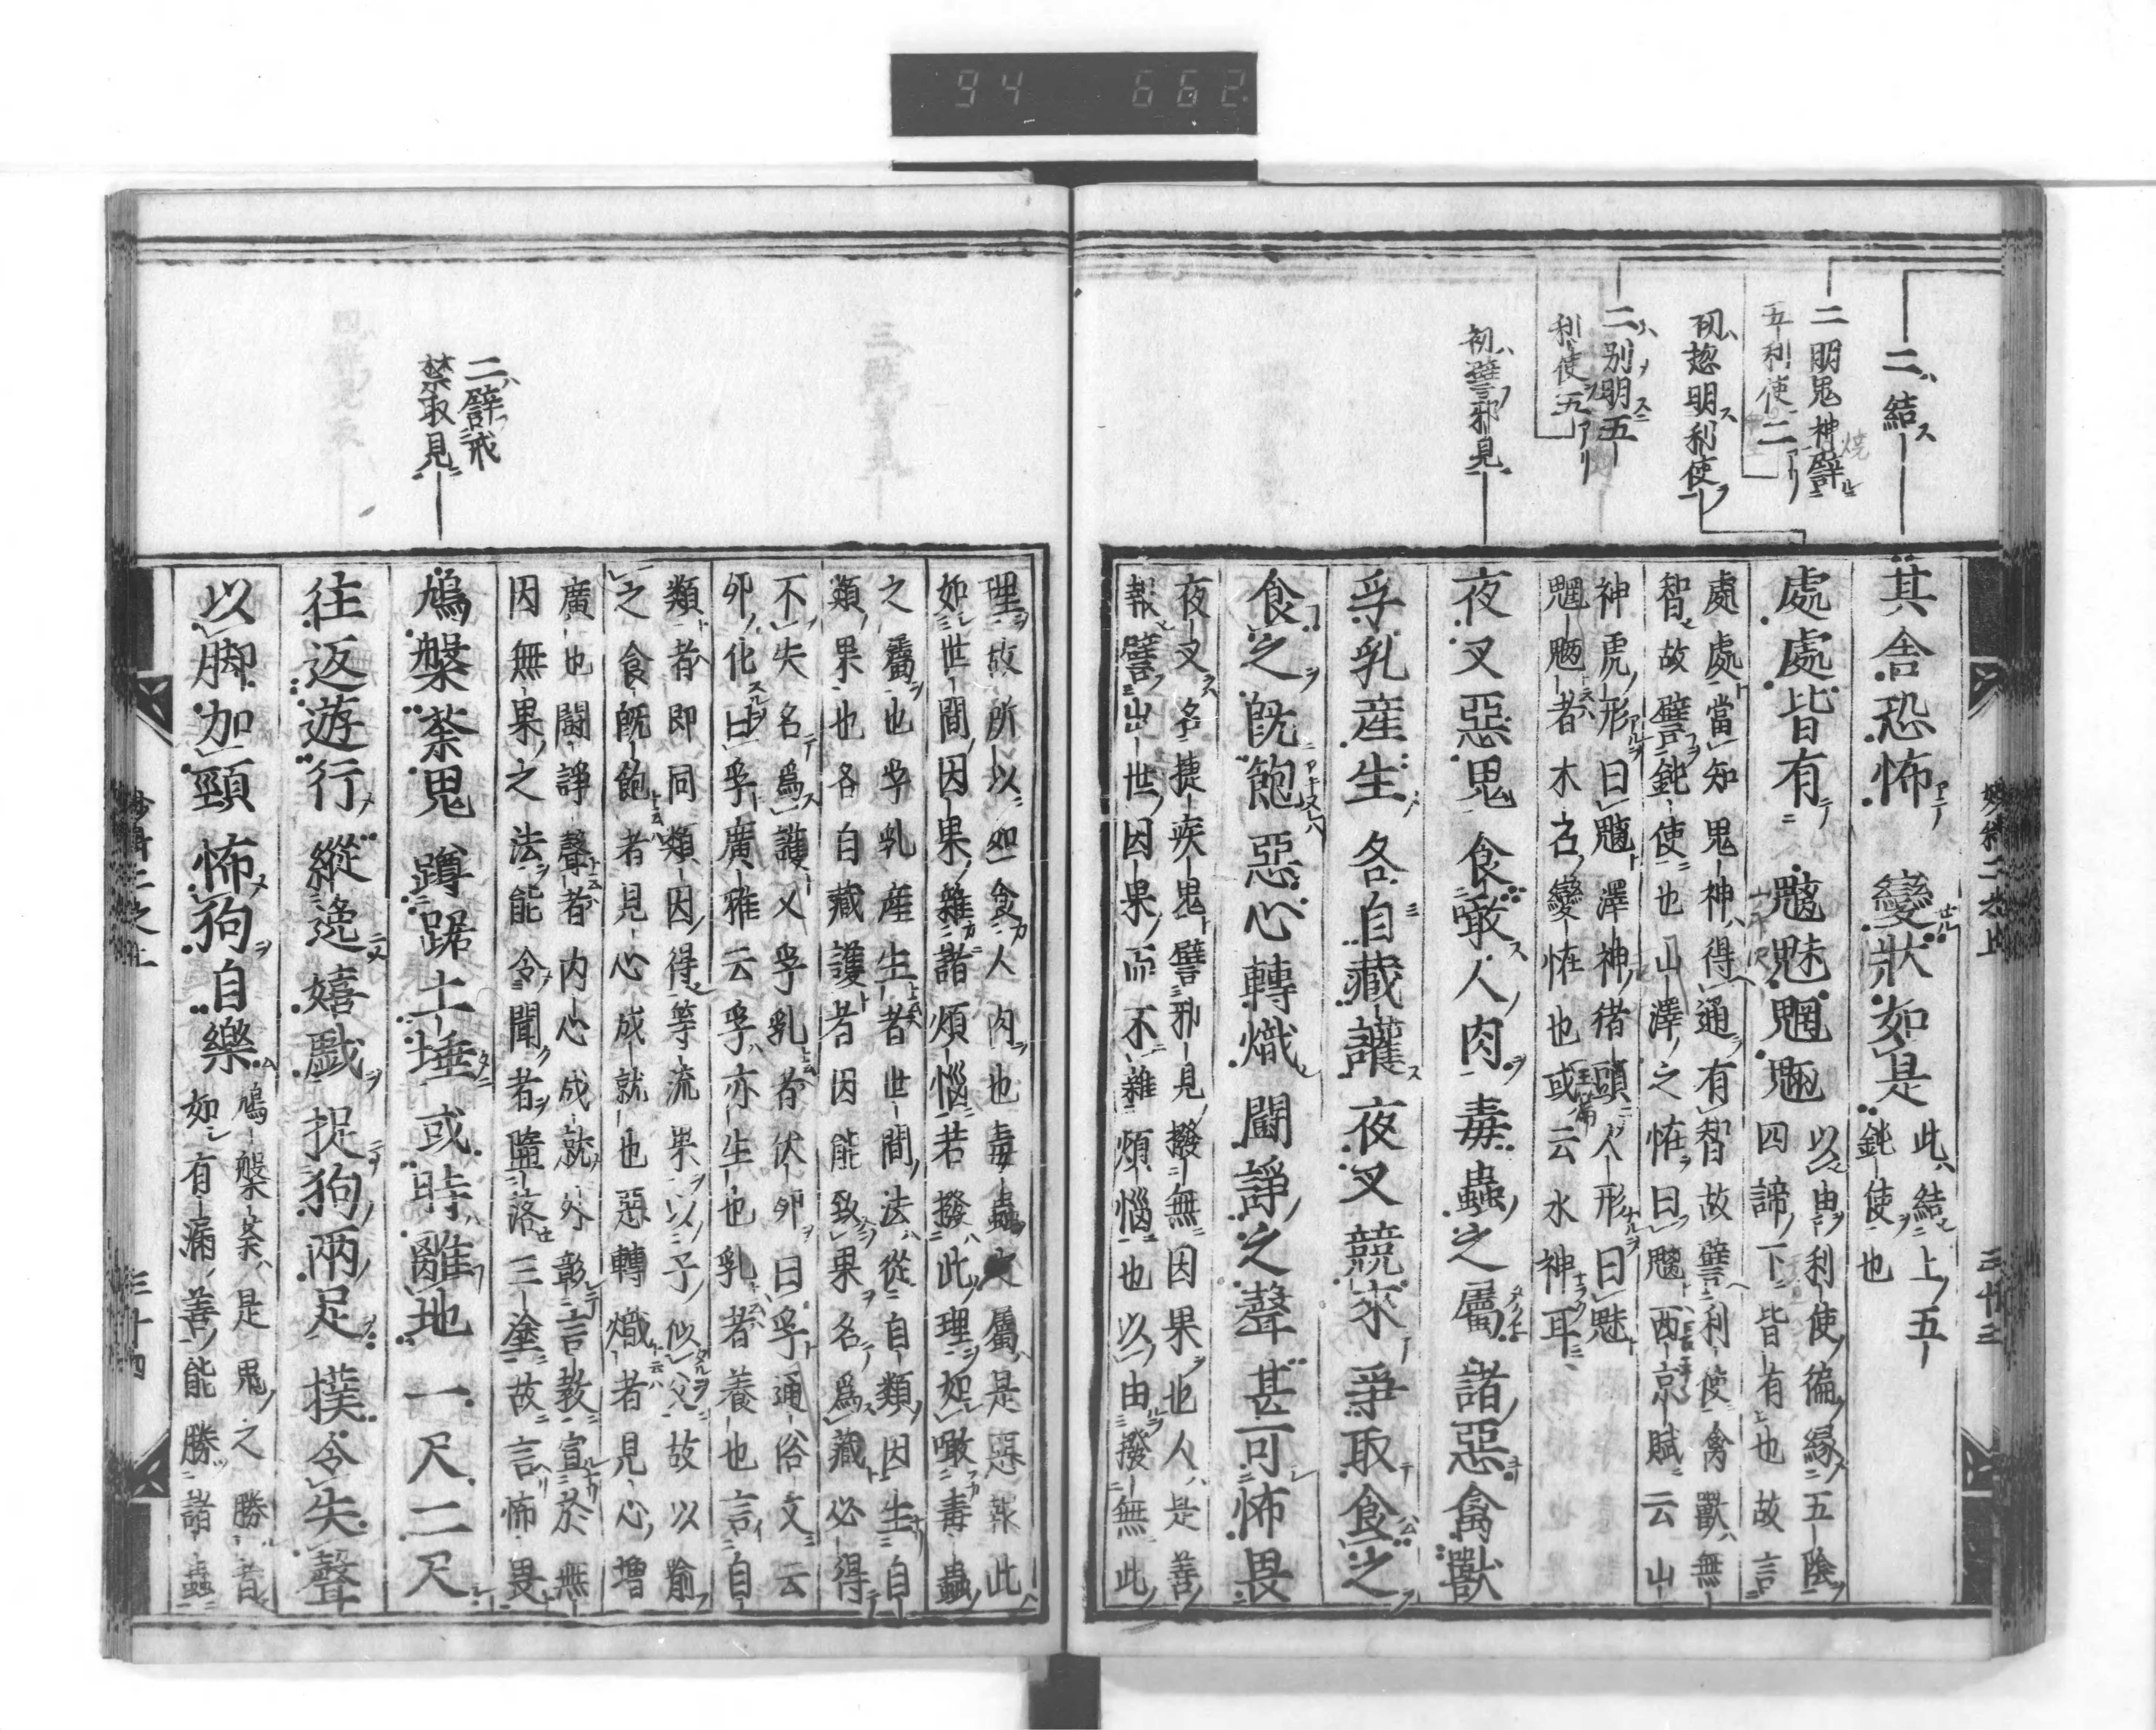 94 662
二結
二明鬼神譬
五利使二
初惣明利使
二別明五
利使五
初譬邪見
其舍恐怖 變狀如是
此結上五
鈍使也
處處皆有 魑魅魍魎
以由利使徧緣五陰
四諦下皆有也故言
處處當知鬼神得通有智故譬利使禽獸無
智故譬鈍使也山澤之怪曰魑西京賦云山
神虎形曰魑澤神猪頭人形曰魅
魍魎者木石變怪也或云水神耳
夜叉惡鬼 食噉人肉 毒蟲之屬 諸惡禽獸
孚乳產生 各自藏護 夜叉競來 爭取食之
食之既飽 惡心轉熾 鬪諍之聲 甚可怖畏
夜叉名捷疾鬼譬邪見撥無因果也人是善
報譬出世因果而不雜煩惱也以由撥無此
理故所以如食人肉也毒蟲之屬是惡報此
如世間因果雜諸煩惱若撥此理如噉毒蟲
之屬也孚乳產生者世間法從自類因生自
類果也各自藏護者因能致果名爲藏必得
不失名爲護又孚乳者伏卵曰孚通俗文云
卵化曰孚廣雅云孚亦生也乳者養也言自
類者即同類因得等流果以子似父故以喻
之食既飽者見心成就也惡轉熾者見心增
廣也鬪諍聲者內心成就外彰言教宣於無
因無果之法能令聞者墮落三塗故言怖畏
二譬戒
禁取見
鳩槃茶鬼 蹲踞土埵 或時離地 一尺二尺
往返遊行 縱逸嬉戲 捉狗兩足 撲令失聲
以脚加頸 怖狗自樂
鳩槃茶是鬼之勝者
如有漏善能勝諸蟲
三十四